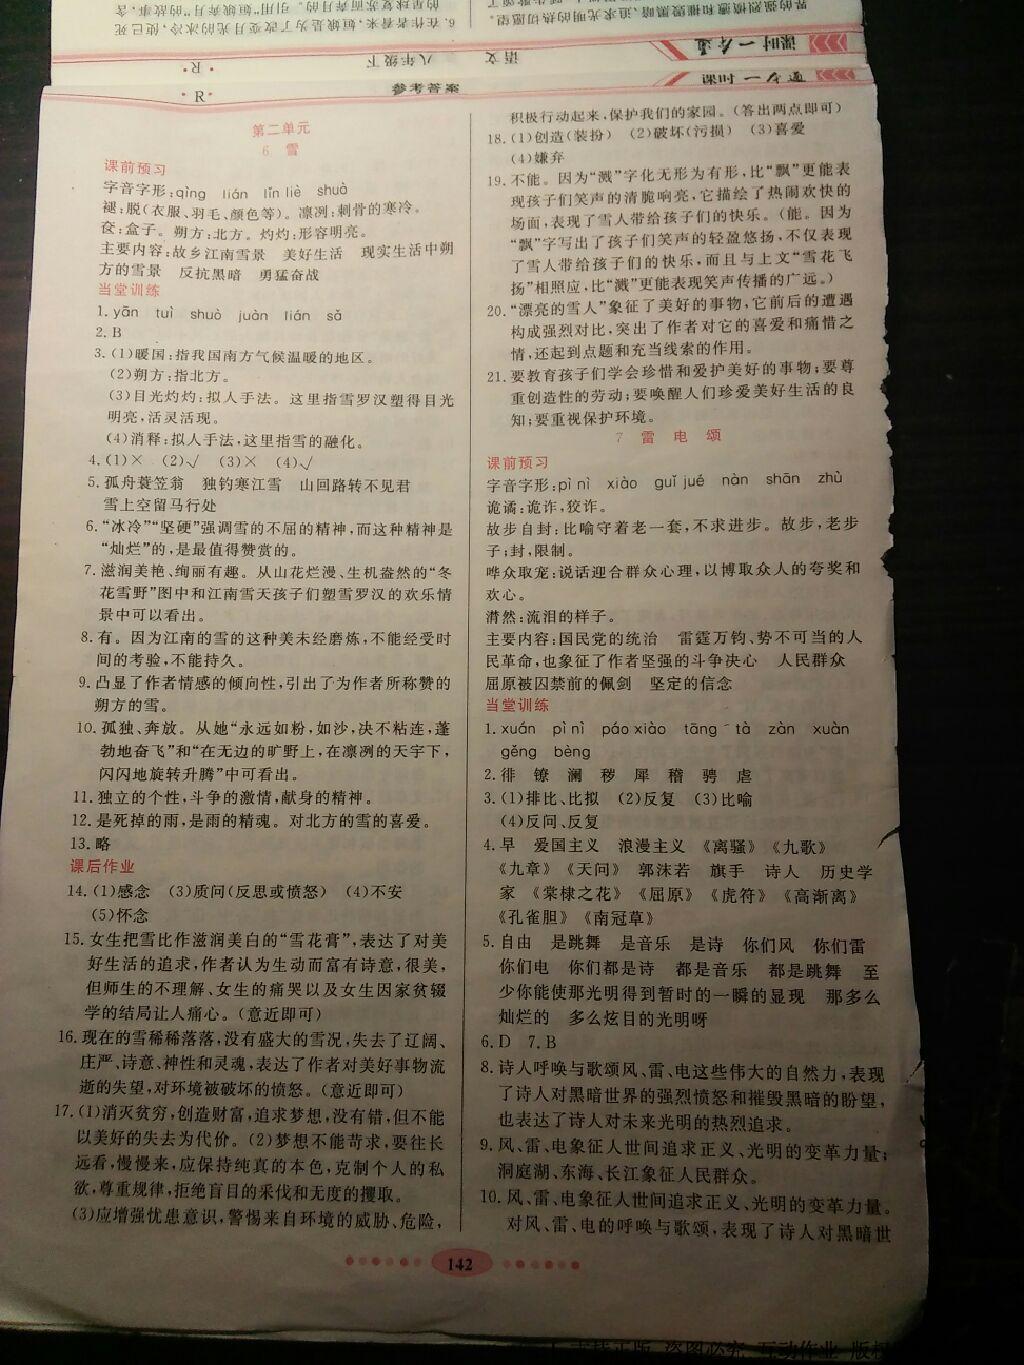 课时一本通
语文 八年级下
·R·
参考答案
·R·
第二单元
6 雪
课前预习
字音字形:qìng lián lǐn liè shuò
褪:脱(衣服、羽毛、颜色等)。凛冽:刺骨的寒冷。
奁:盒子。朔方:北方。灼灼:形容明亮。
主要内容:故乡江南雪景 美好生活 现实生活中朔
方的雪景 反抗黑暗 勇猛奋战
当堂训练
1. yān tuì shuò juàn lián sǎ
2. B
3. (1)暖国:指我国南方气候温暖的地区。
(2)朔方:指北方。
(3)目光灼灼:拟人手法。这里指雪罗汉塑得目光
明亮,活灵活现。
(4)消释:拟人手法,这里指雪的融化。
4. (1)× (2)√ (3)× (4)√
5. 孤舟蓑笠翁 独钓寒江雪 山回路转不见君
雪上空留马行处
6. “冰冷”“坚硬”强调雪的不屈的精神,而这种精神是
“灿烂”的,是最值得赞赏的。
7. 滋润美艳、绚丽有趣。从山花烂漫、生机盎然的“冬
花雪野”图中和江南雪天孩子们塑雪罗汉的欢乐情
景中可以看出。
8. 有。因为江南的雪的这种美未经磨炼,不能经受时
间的考验,不能持久。
9. 凸显了作者情感的倾向性,引出了为作者所称赞的
朔方的雪。
10. 孤独、奔放。从她“永远如粉,如沙,决不粘连,蓬
勃地奋飞”和“在无边的旷野上,在凛冽的天宇下,
闪闪地旋转升腾”中可看出。
11. 独立的个性,斗争的激情,献身的精神。
12. 是死掉的雨,是雨的精魂。对北方的雪的喜爱。
13. 略
课后作业
14. (1)感念 (3)质问(反思或愤怒) (4)不安
(5)怀念
15. 女生把雪比作滋润美白的“雪花膏”,表达了对美
好生活的追求,作者认为生动而富有诗意,很美,
但师生的不理解、女生的痛哭以及女生因家贫辍
学的结局让人痛心。(意近即可)
16. 现在的雪稀稀落落,没有盛大的雪况,失去了辽阔、
庄严、诗意、神性和灵魂,表达了作者对美好事物流
逝的失望,对环境被破坏的愤怒。(意近即可)
17. (1)消灭贫穷,创造财富,追求梦想,没有错,但不能
以美好的失去为代价。(2)梦想不能苛求,要往长
远看,慢慢来,应保持纯真的本色,克制个人的私
欲,尊重规律,拒绝盲目的采伐和无度的攫取。
(3)应增强忧患意识,警惕来自环境的威胁、危险,
积极行动起来,保护我们的家园。(答出两点即可)
18. (1)创造(装扮) (2)破坏(污损) (3)喜爱
(4)嫌弃
19. 不能。因为“溅”字化无形为有形,比“飘”更能表
现孩子们笑声的清脆响亮,它描绘了热闹欢快的
场面,表现了雪人带给孩子们的快乐。(能。因为
“飘”字写出了孩子们笑声的轻盈悠扬,不仅表现
了雪人带给孩子们的快乐,而且与上文“雪花飞
扬”相照应,比“溅”更能表现笑声传播的广远。)
20. “漂亮的雪人”象征了美好的事物,它前后的遭遇
构成强烈对比,突出了作者对它的喜爱和痛惜之
情,还起到点题和充当线索的作用。
21. 要教育孩子们学会珍惜和爱护美好的事物;要尊
重创造性的劳动;要唤醒人们珍爱美好生活的良
知;要重视保护环境。
7 雷电颂
课前预习
字音字形:pì nì xiào guǐ jué nàn shān zhù
诡谲:诡诈,狡诈。
故步自封:比喻守着老一套,不求进步。故步,老步
子;封,限制。
哗众取宠:说话迎合群众心理,以博取众人的夸奖和
欢心。
潸然:流泪的样子。
主要内容:国民党的统治 雷霆万钧、势不可当的人
民革命,也象征了作者坚强的斗争决心 人民群众
屈原被囚禁前的佩剑 坚定的信念
当堂训练
1. xuán pì nì páo xiào tāng tà zàn xuàn
gěng bèng
2. 徘 镣 澜 秽 犀 稽 骋 虐
3. (1)排比、比拟 (2)反复 (3)比喻
(4)反问、反复
4. 早 爱国主义 浪漫主义 《离骚》《九歌》
《九章》《天问》 郭沫若 旗手 诗人 历史学
家 《棠棣之花》《屈原》《虎符》《高渐离》
《孔雀胆》《南冠草》
5. 自由 是跳舞 是音乐 是诗 你们风 你们雷
你们电 你们都是诗 都是音乐 都是跳舞 至
少你能使那光明得到暂时的一瞬的显现 那多么
灿烂的 多么炫目的光明呀
6. D 7. B
8. 诗人呼唤与歌颂风、雷、电这些伟大的自然力,表现
了诗人对黑暗世界的强烈愤怒和摧毁黑暗的盼望,
也表达了诗人对未来光明的热烈追求。
9. 风、雷、电象征人世间追求正义、光明的变革力量;
洞庭湖、东海、长江象征人民群众。
10. 风、雷、电象征人世间追求正义、光明的变革力量。
对风、雷、电的呼唤与歌颂,表现了诗人对黑暗世
142
盗图必究 互动作业